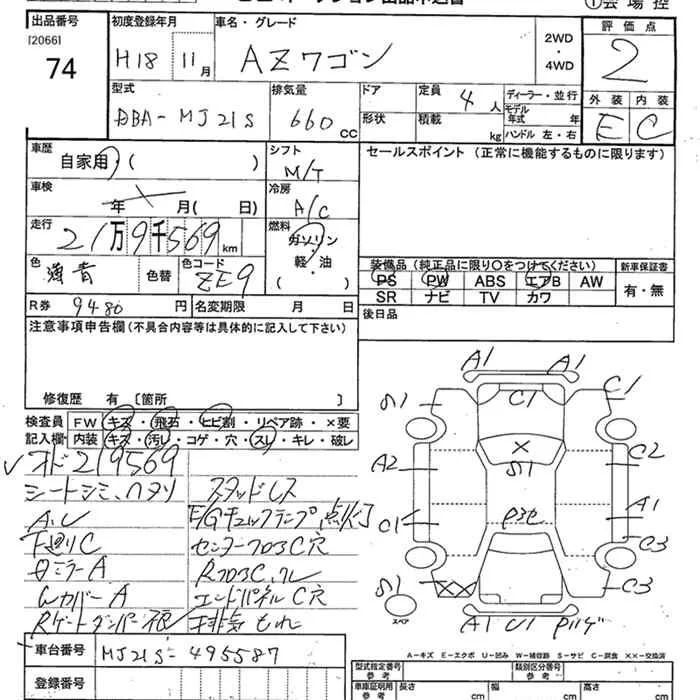 ①会場控
出品番号 初度登録年月 車名・グレード 評価点
[2066]
74 H18 11月 AZワゴン 2WD・4WD 2
型式 排気量 ドア 定員 4人 ディーラー・並行 外装 内装
DBA-MJ21S 660cc 形状 積載 kg モデル年式 年 ハンドル 左・右 E C
車歴 自家用・( ) シフト M/T セールスポイント (正常に機能するものに限ります)
車検 年 月( 日) 冷房 A/C
走行 21万9千569km 燃料 ガソリン 軽・油 ( )
色 色替 色コード ZE9
装備品 (純正品に限り○をつけてください) 新車保証書
PS PW ABS エアB AW 有・無
SR ナビ TV カワ
R券 9480円 名変期限 月 日 後日品
注意事項申告欄(不具合内容等は具体的に記入して下さい)
修復歴 有 [箇所 ]
検査員記入欄 FW キズ・飛石・ヒビ割・リペア跡・×要
内装 キズ・汚レ・コゲ・穴・スレ・キレ・破レ
オド219569
シートシミ、ヘタリ スタッドレス
E/Gチェックランプ点灯
下廻りC センターフロアC穴
ミラーA RフロアC
WカバーA エンドパネルC穴
Rゲートダンパー 排気もれ
A1 A1
C1 C1
A2 × C2
C1 A1
C3
×× C3
スペア A1 U1
A-キズ E-エクボ U-凹み W-補修跡 S-サビ C-腐食 ××-交換済
車台番号 MJ21S-495587
登録番号
型式指定番号 参考 類別区分番号 参考
車庫証明用 参考 長さ cm 幅 cm 高さ cm